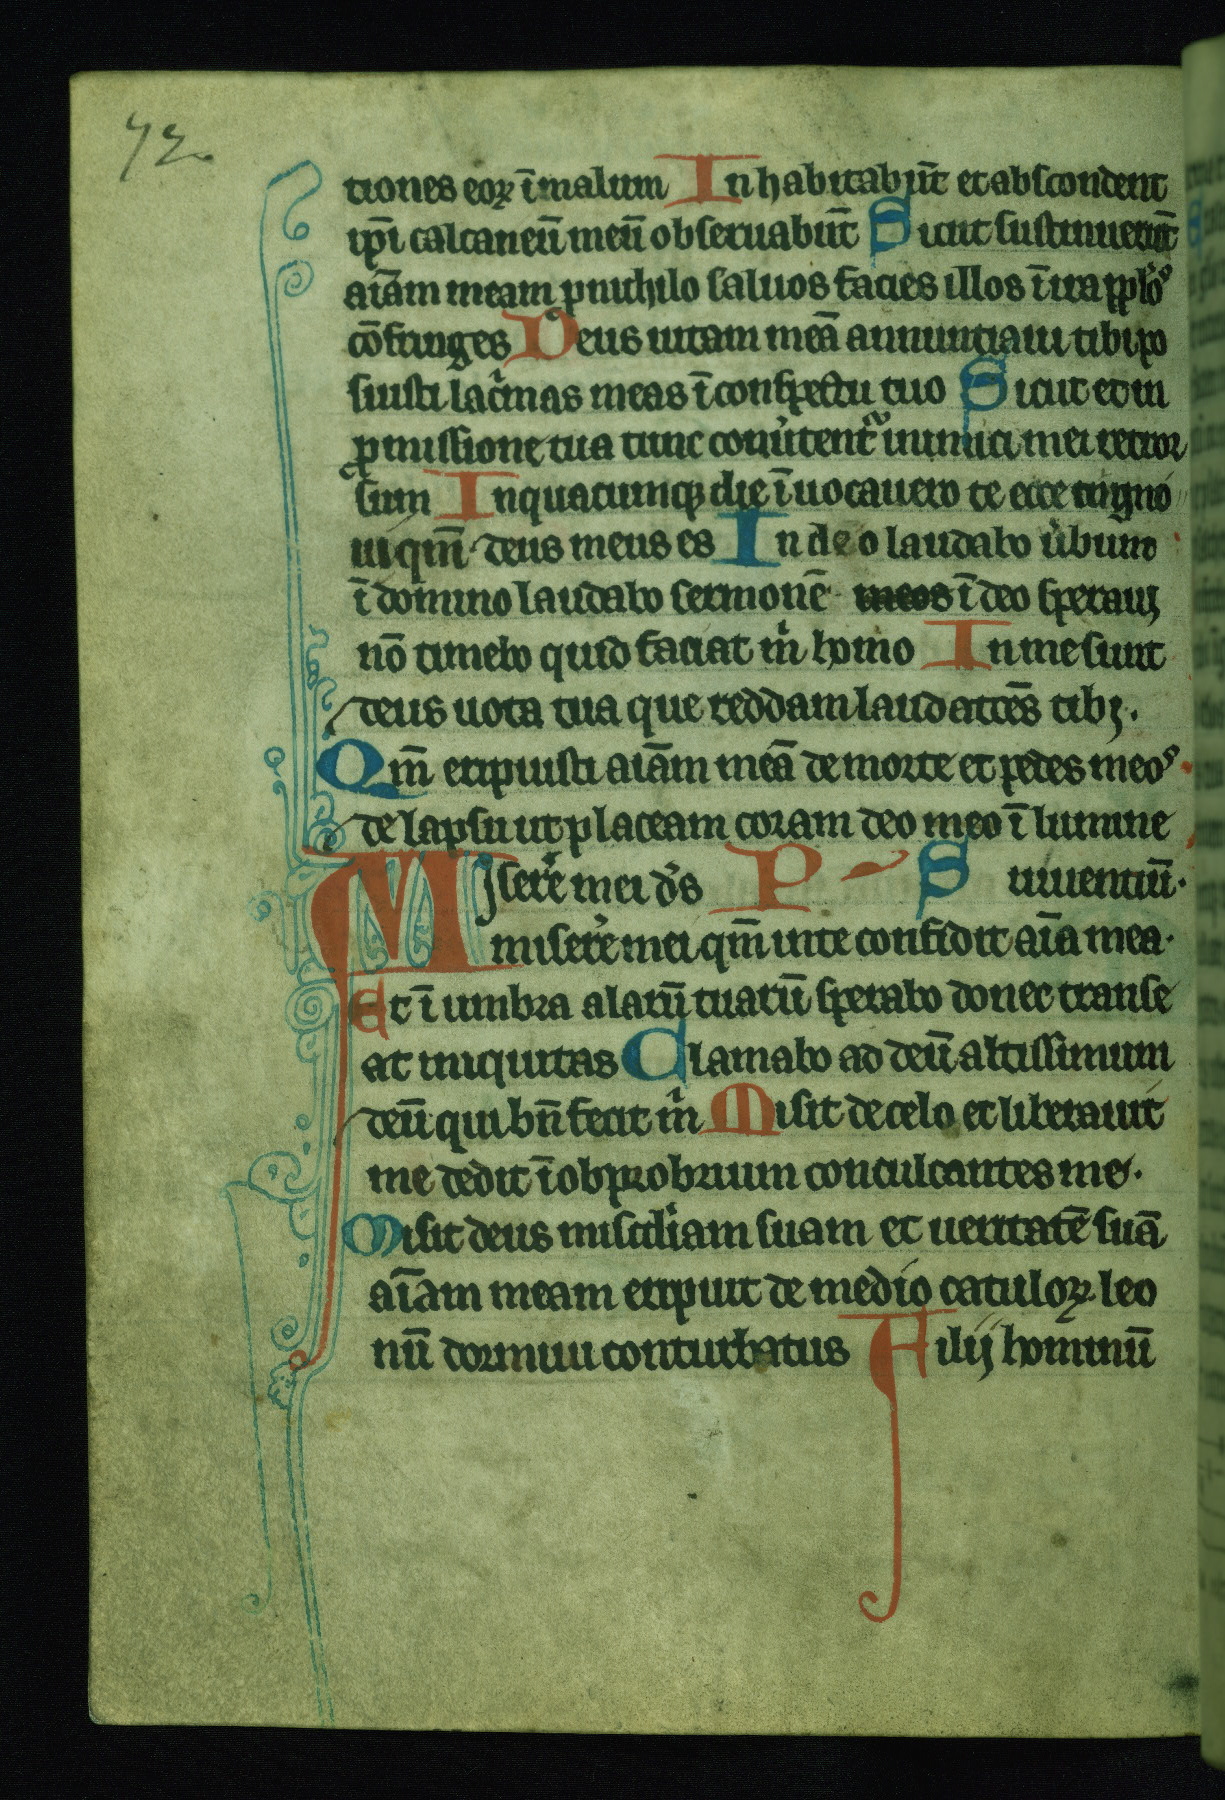 72.
tiones eoꝝ ī malum Inhabitabūt et abscondent
ip̄i calcaneū meū obseruabūt Sicut sustinuerūt
aīam meam p nichilo saluos facies illos ī ira pplōs
cōfringes Deus uitam meā annuntiaui tibi po
suisti lac̄mas meas ī conspectu tuo Sicut et in
ꝓmissione tua tunc conūtent᷑ inimici mei retror
sum In quacumqꝫ die īuocauero te ecce cogno
ui qm̄ deus meus es In deo laudabo ūbum
ī domino laudabo sermonē meos ī deo speraui
nō timebo quid faciat m̄ homo In me sunt
deus uota tua que reddam laudatiōs tibi.
Qm̄ eripuisti aīam meā de morte et pedes meos
de lapsu ut placeam coram deo meo ī lumine
Miserē mei ds̄ PS uiuentiū.
miserē mei qm̄ in te confidit aīa mea.
Et ī umbra alarū tuarū sperabo donec transe
at iniquitas Clamabo ad deū altissimum
deū qui bn̄ fecit m̄ Misit de celo et liberauit
me dedit ī obprobrium conculcantes me.
Misit deus misc̄diam suam et ueritatē suā
aīam meam eripuit de medio catuloꝝ leo
nū dormiui conturbatus Filij hominū